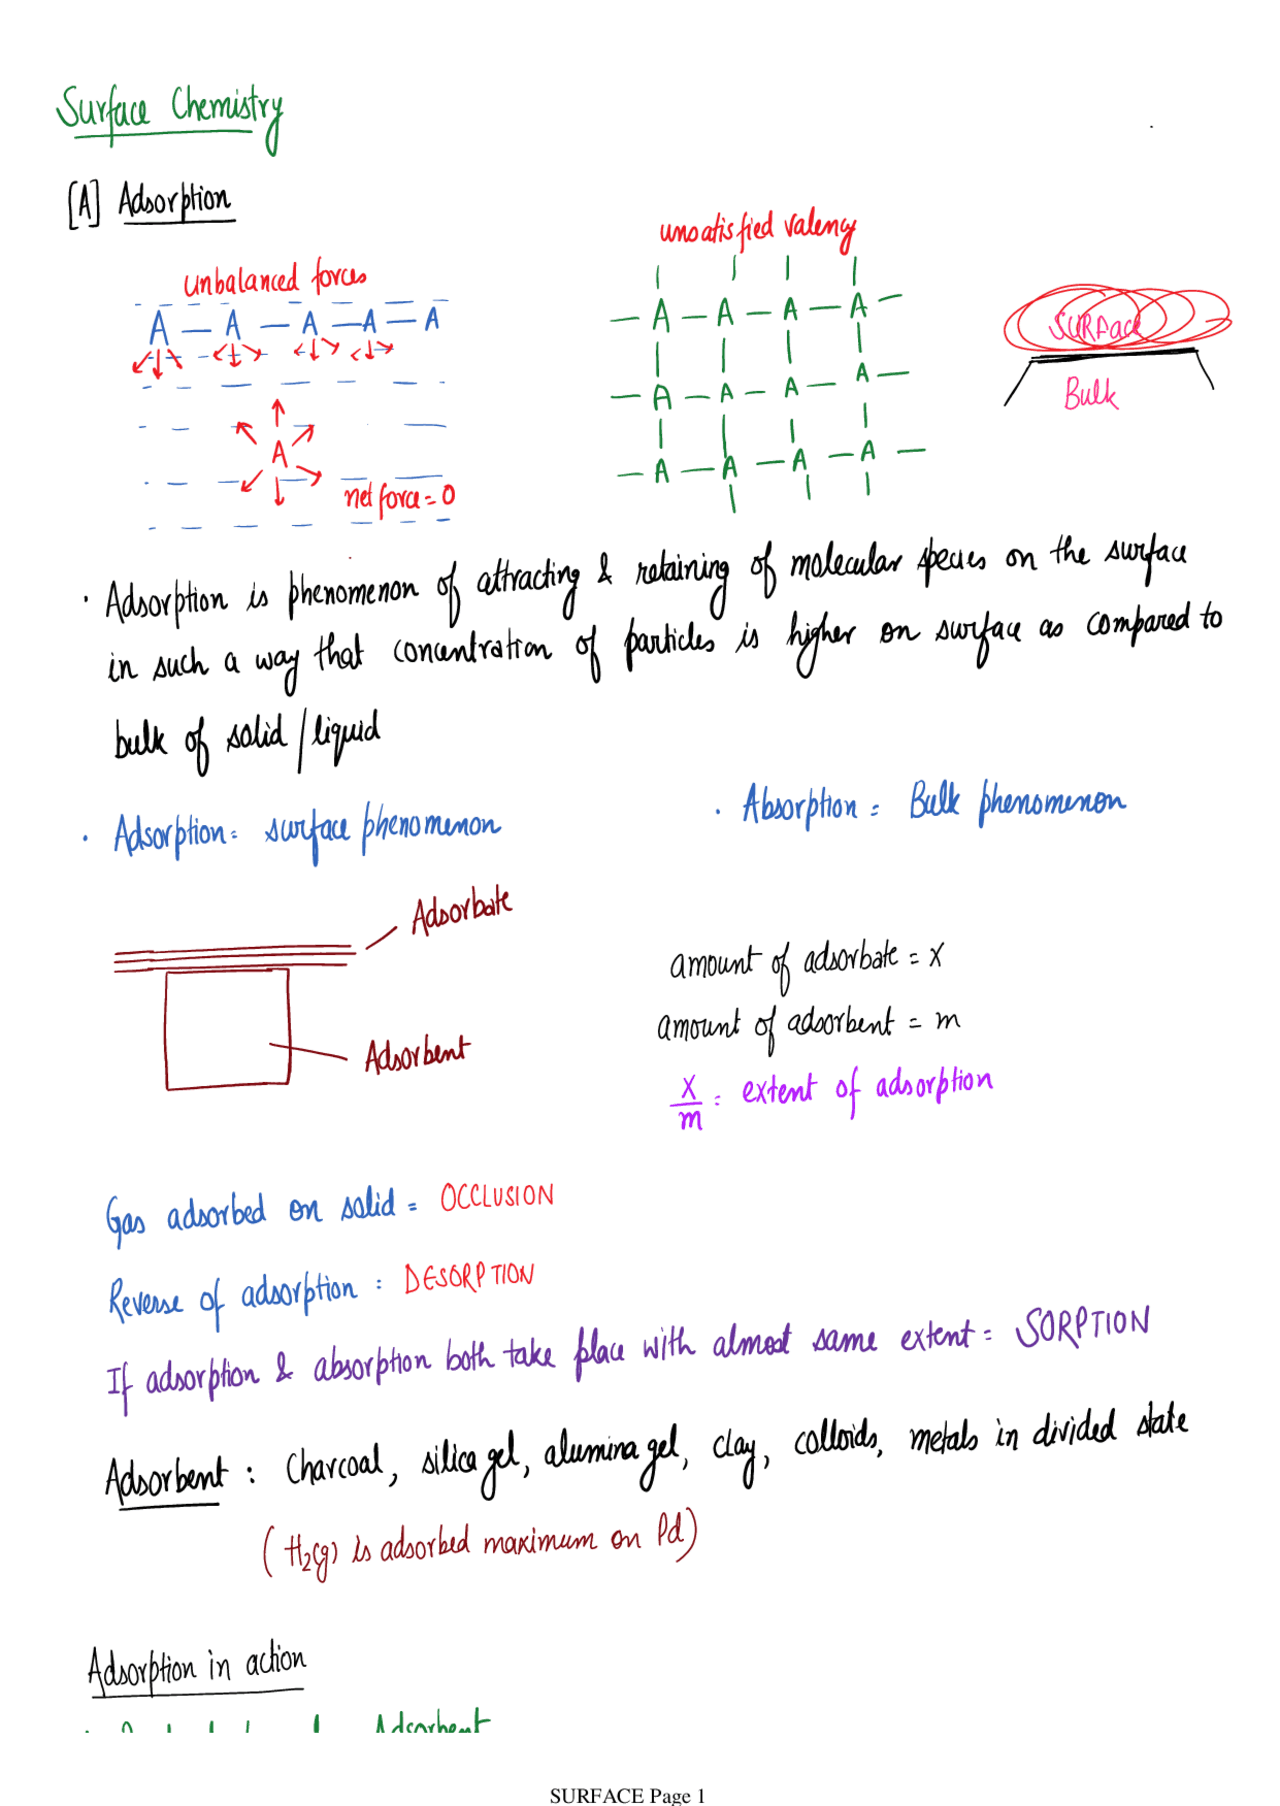 Surface Chemistry
[A] Adsorption
unbalanced forces
A — A — A — A — A
A
net force = 0
unsatisfied valency
— A — A — A — A —
— A — A — A — A —
— A — A — A — A —
SURFace
Bulk
· Adsorption is phenomenon of attracting & retaining of molecular species on the surface
in such a way that concentration of particles is higher on surface as compared to
bulk of solid / liquid
· Adsorption = surface phenomenon
· Absorption = Bulk phenomenon
Adsorbate
Adsorbent
amount of adsorbate = x
amount of adsorbent = m
x/m = extent of adsorption
Gas adsorbed on solid = OCCLUSION
Reverse of adsorption : DESORPTION
If adsorption & absorption both take place with almost same extent = SORPTION
Adsorbent : Charcoal, silica gel, alumina gel, clay, colloids, metals in divided state
( H₂(g) is adsorbed maximum on Pd)
Adsorption in action
Adsorbent
SURFACE Page 1